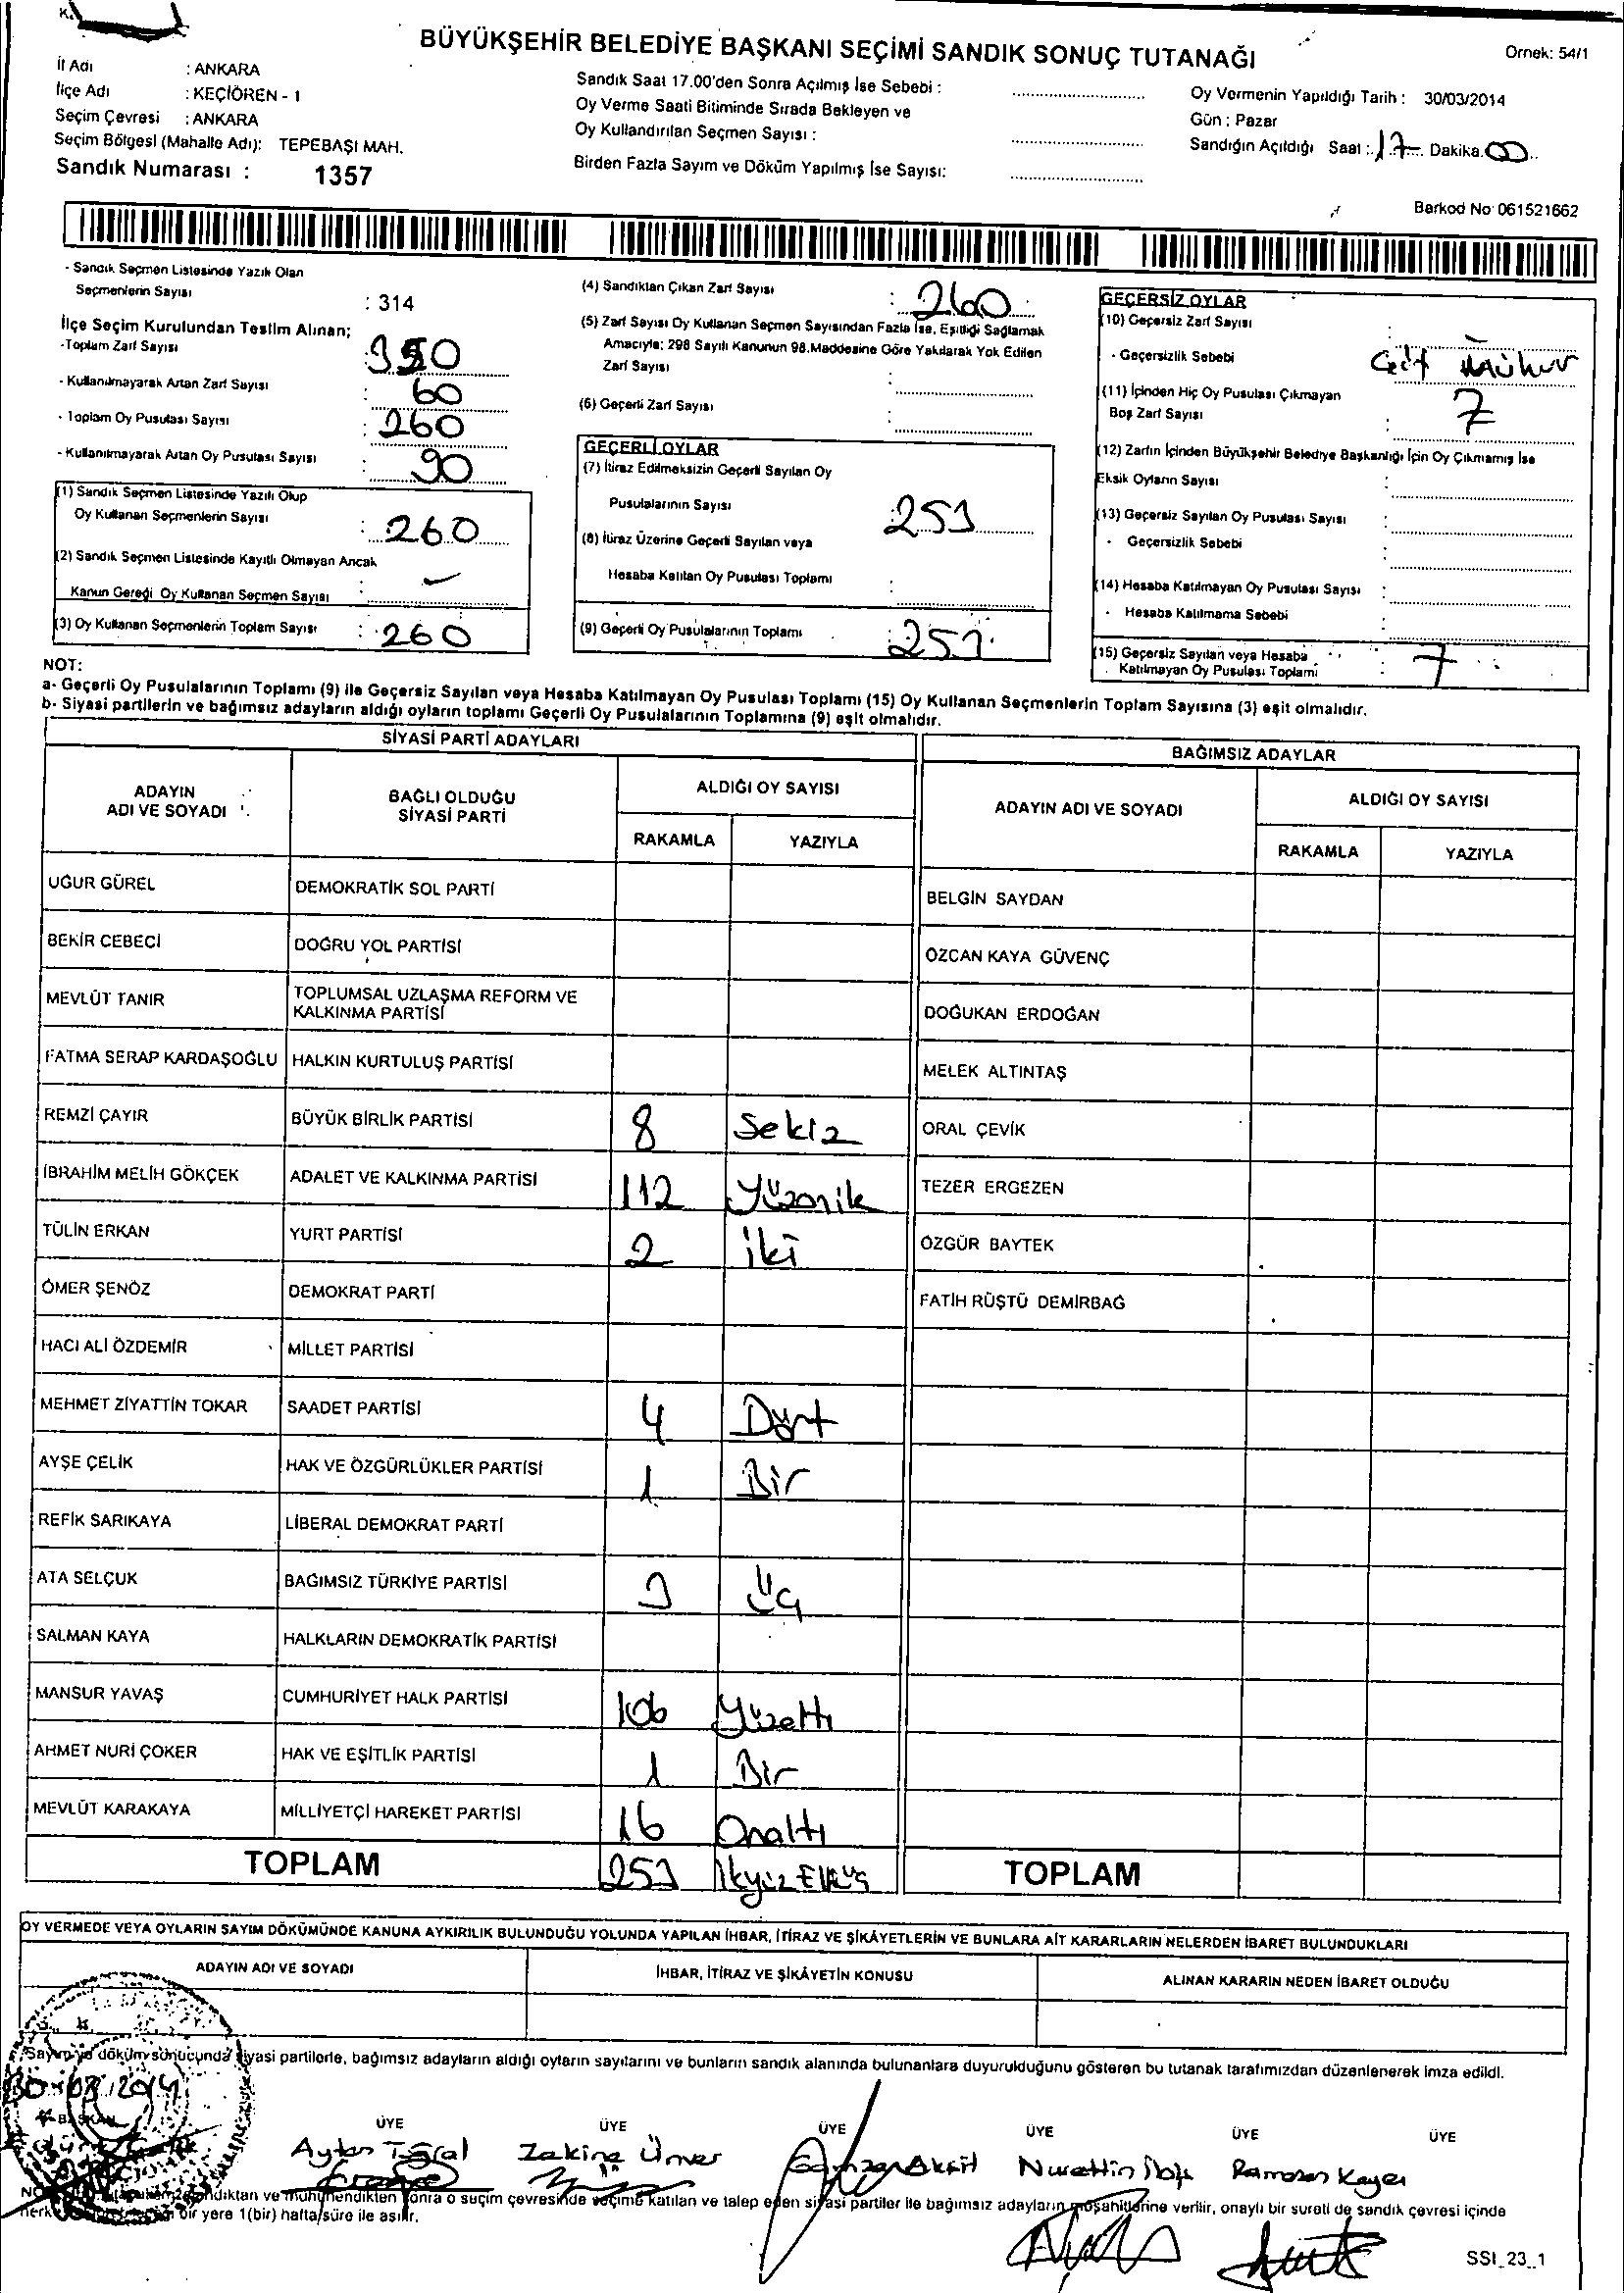 BÜYÜKŞEHİR BELEDİYE BAŞKANI SEÇİMİ SANDIK SONUÇ TUTANAĞI
Örnek: 54/1
İl Adı : ANKARA
İlçe Adı : KEÇİÖREN - 1
Seçim Çevresi : ANKARA
Seçim Bölgesi (Mahalle Adı): TEPEBAŞI MAH.
Sandık Numarası : 1357
Sandık Saat 17.00'den Sonra Açılmış İse Sebebi :
Oy Verme Saati Bitiminde Sırada Bekleyen ve
Oy Kullandırılan Seçmen Sayısı :
Birden Fazla Sayım ve Döküm Yapılmış İse Sayısı:
Oy Vermenin Yapıldığı Tarih : 30/03/2014
Gün : Pazar
Sandığın Açıldığı Saat : 17 Dakika 00
Barkod No 061521662
- Sandık Seçmen Listesinde Yazılı Olan
Seçmenlerin Sayısı : 314
İlçe Seçim Kurulundan Teslim Alınan;
-Toplam Zarf Sayısı : 350
- Kullanılmayarak Artan Zarf Sayısı : 60
- Toplam Oy Pusulası Sayısı : 260
- Kullanılmayarak Artan Oy Pusulası Sayısı : 90
(1) Sandık Seçmen Listesinde Yazılı Olup
Oy Kullanan Seçmenlerin Sayısı : 260
(2) Sandık Seçmen Listesinde Kayıtlı Olmayan Ancak
Kanun Gereği Oy Kullanan Seçmen Sayısı : -
(3) Oy Kullanan Seçmenlerin Toplam Sayısı : 260
(4) Sandıktan Çıkan Zarf Sayısı : 260
(5) Zarf Sayısı Oy Kullanan Seçmen Sayısından Fazla İse, Eşitliği Sağlamak
Amacıyla; 298 Sayılı Kanunun 98.Maddesine Göre Yakılarak Yok Edilen
Zarf Sayısı :
(6) Geçerli Zarf Sayısı :
GEÇERLİ OYLAR
(7) İtiraz Edilmeksizin Geçerli Sayılan Oy
Pusulalarının Sayısı : 253
(8) İtiraz Üzerine Geçerli Sayılan veya
Hesaba Katılan Oy Pusulası Toplamı :
(9) Geçerli Oy Pusulalarının Toplamı : 253
GEÇERSİZ OYLAR
(10) Geçersiz Zarf Sayısı : -
- Geçersizlik Sebebi Çift Mühür
(11) İçinden Hiç Oy Pusulası Çıkmayan
Boş Zarf Sayısı : 7
(12) Zarfın İçinden Büyükşehir Belediye Başkanlığı İçin Oy Çıkmamış İse
Eksik Oyların Sayısı :
(13) Geçersiz Sayılan Oy Pusulası Sayısı :
- Geçersizlik Sebebi :
(14) Hesaba Katılmayan Oy Pusulası Sayısı :
- Hesaba Katılmama Sebebi :
(15) Geçersiz Sayılan veya Hesaba
Katılmayan Oy Pusulası Toplamı : 7
NOT:
a- Geçerli Oy Pusulalarının Toplamı (9) ile Geçersiz Sayılan veya Hesaba Katılmayan Oy Pusulası Toplamı (15) Oy Kullanan Seçmenlerin Toplam Sayısına (3) eşit olmalıdır.
b- Siyasi partilerin ve bağımsız adayların aldığı oyların toplamı Geçerli Oy Pusulalarının Toplamına (9) eşit olmalıdır.
SİYASİ PARTİ ADAYLARI BAĞIMSIZ ADAYLAR
ADAYIN ADI VE SOYADI BAĞLI OLDUĞU SİYASİ PARTİ ALDIĞI OY SAYISI ADAYIN ADI VE SOYADI ALDIĞI OY SAYISI
RAKAMLA YAZIYLA RAKAMLA YAZIYLA
UĞUR GÜREL DEMOKRATİK SOL PARTİ BELGİN SAYDAN
BEKİR CEBECİ DOĞRU YOL PARTİSİ ÖZCAN KAYA GÜVENÇ
MEVLÜT TANIR TOPLUMSAL UZLAŞMA REFORM VE KALKINMA PARTİSİ DOĞUKAN ERDOĞAN
FATMA SERAP KARDAŞOĞLU HALKIN KURTULUŞ PARTİSİ MELEK ALTINTAŞ
REMZİ ÇAYIR BÜYÜK BİRLİK PARTİSİ 8 Sekiz ORAL ÇEVİK
İBRAHİM MELİH GÖKÇEK ADALET VE KALKINMA PARTİSİ 112 Yüzonik TEZER ERGEZEN
TÜLİN ERKAN YURT PARTİSİ 2 iki ÖZGÜR BAYTEK
ÖMER ŞENÖZ DEMOKRAT PARTİ FATİH RÜŞTÜ DEMİRBAĞ
HACI ALİ ÖZDEMİR MİLLET PARTİSİ
MEHMET ZİYATTİN TOKAR SAADET PARTİSİ 4 Dört
AYŞE ÇELİK HAK VE ÖZGÜRLÜKLER PARTİSİ 1 Bir
REFİK SARIKAYA LİBERAL DEMOKRAT PARTİ
ATA SELÇUK BAĞIMSIZ TÜRKİYE PARTİSİ 3 Üç
SALMAN KAYA HALKLARIN DEMOKRATİK PARTİSİ
MANSUR YAVAŞ CUMHURİYET HALK PARTİSİ 106 Yüzaltı
AHMET NURİ ÇOKER HAK VE EŞİTLİK PARTİSİ 1 Bir
MEVLÜT KARAKAYA MİLLİYETÇİ HAREKET PARTİSİ 16 Onaltı
TOPLAM 253 İkyüz Elliüç TOPLAM
OY VERMEDE VEYA OYLARIN SAYIM DÖKÜMÜNDE KANUNA AYKIRILIK BULUNDUĞU YOLUNDA YAPILAN İHBAR, İTİRAZ VE ŞİKÂYETLERİN VE BUNLARA AİT KARARLARIN NELERDEN İBARET BULUNDUKLARI
ADAYIN ADI VE SOYADI İHBAR, İTİRAZ VE ŞİKÂYETİN KONUSU ALINAN KARARIN NEDEN İBARET OLDUĞU
Sayım ve döküm sonucunda siyasi partilerle, bağımsız adayların aldığı oyların sayılarını ve bunların sandık alanında bulunanlara duyurulduğunu gösteren bu tutanak tarafımızdan düzenlenerek imza edildi.
30.03.2014
BAŞKAN ÜYE ÜYE ÜYE ÜYE ÜYE ÜYE
Zakine Ünver Akşit Nurettin Ramazan Kaya
sandıktan ve mühürlendikten sonra o seçim çevresinde seçime katılan ve talep eden siyasi partiler ile bağımsız adayların müşahitlerine verilir, onaylı bir sureti de sandık çevresi içinde
bir yere 1(bir) hafta süre ile asılır.
SSI_23_1